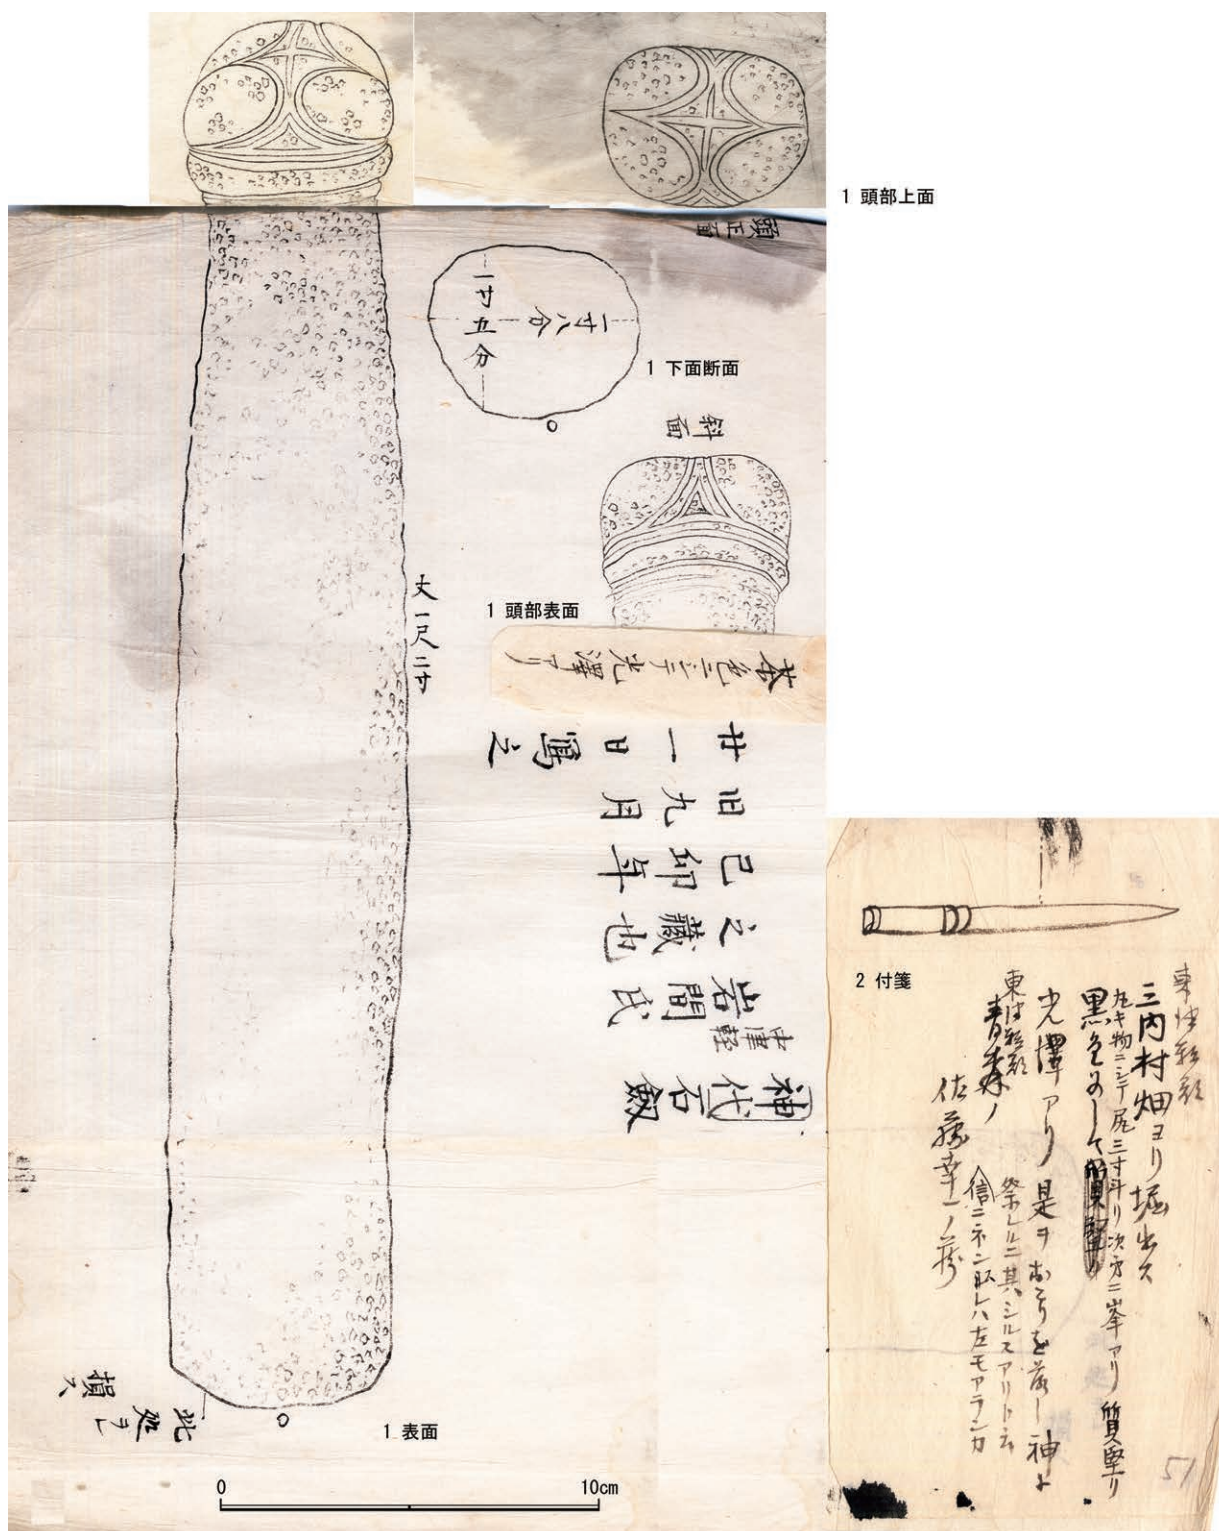 1 頭部上面
頭正面
一寸五分
一寸八分
1 下面断面
斜面
1 頭部表面
丈一尺二寸
本色ニシテ光澤アリ
神代石劔
中津軽
岩間氏
之藏也
己卯年
旧九月
廿一日寫之
此処ヨレ
損ス
1 表面
0 10cm
2 付箋
東津軽郡
三内村畑ヨリ堀出ス
丸キ物ニシテ尻三寸斗リ次方ニ峯アリ 質堅リ
黒色にして
光澤アリ 是ヲおこりを落し神と
祭レルニ其シルスアリト云
信ニネン
東津軽郡
青森ノ
佐藤幸一ノ蔵
51